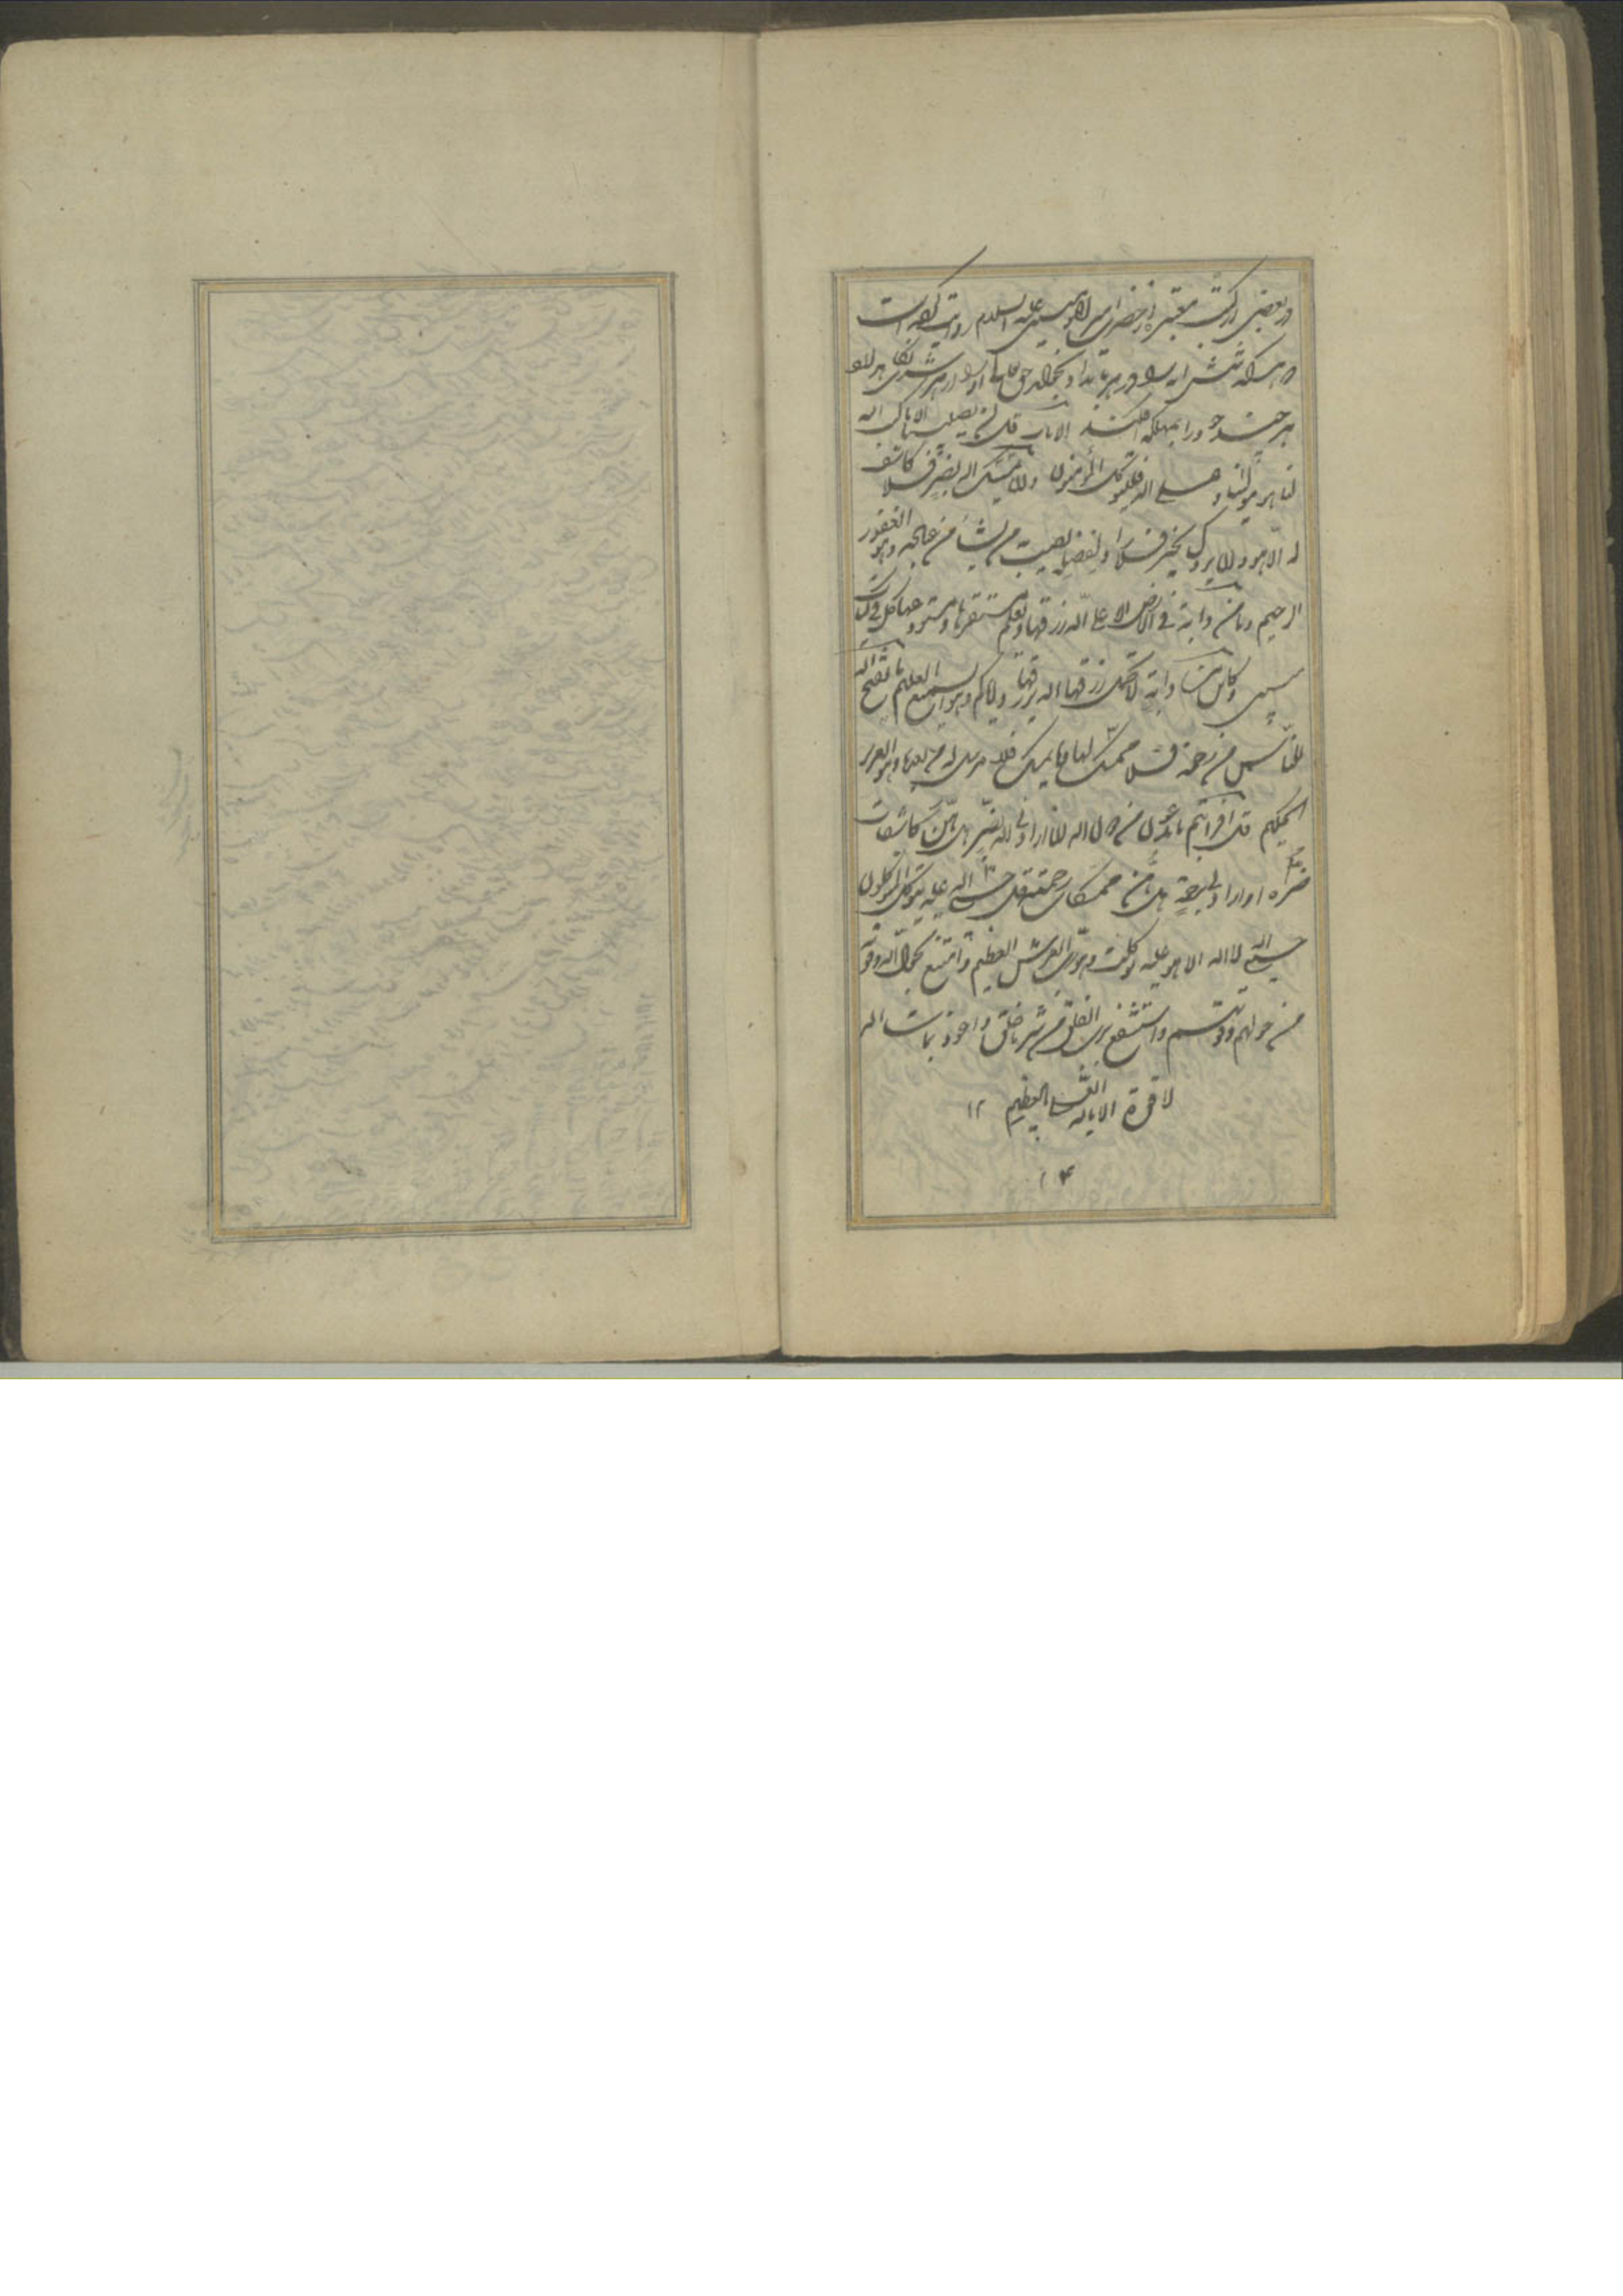 در بعضی از کتب معتبره از حضرت امیر المؤمنین علیه السلام روایت کرده است
که هر که شش ایه را هر بامداد بخواند حق تعالی او را از هر شری نگاه
هر چند خود را بمهلکه افکند الایات قل لن یصیبنا الا ما کتب الله
لنا هو مولینا و علی الله فلیتوکل المؤمنون وان یمسسک الله بضر فلا کاشف
له الا هو وان یردک بخیر فلا راد لفضله یصیب به من یشاء من عباده وهو الغفور
الرحیم وما من دابة فی الارض الا علی الله رزقها ویعلم مستقرها ومستودعها کل فی کتاب
مبین وکاین من دابة لا تحمل رزقها الله یرزقها وایاکم وهو السمیع العلیم ما یفتح الله
للناس من رحمة فلا ممسک لها وما یمسک فلا مرسل له من بعده وهو العزیز
الحکیم قل افرایتم ما تدعون من دون الله ان ارادنی الله بضر هل هن کاشفات
ضره او ارادنی برحمة هل هن ممسکات رحمته قل حسبی الله علیه یتوکل المتوکلون
حسبی الله لا اله الا هو علیه توکلت وهو رب العرش العظیم وامتنع بحول الله وقوته
من حولهم وقوتهم واستشفع برب الفلق من شر ما خلق واعوذ بما شاء الله
لا قوة الا بالله العلی العظیم ۱۲